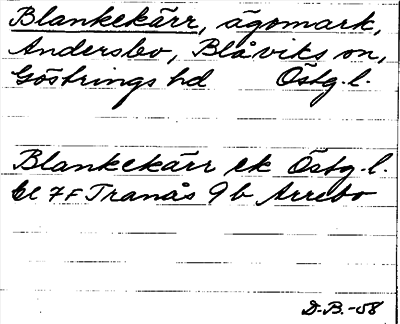 Blankekärr, ägomark,
Andersbo, Blåviks sn,
Göstrings hd Östg. l.
Blankekärr ek Östg. l.
bl 7F Tranås 9b Arrebo
D.B.-58